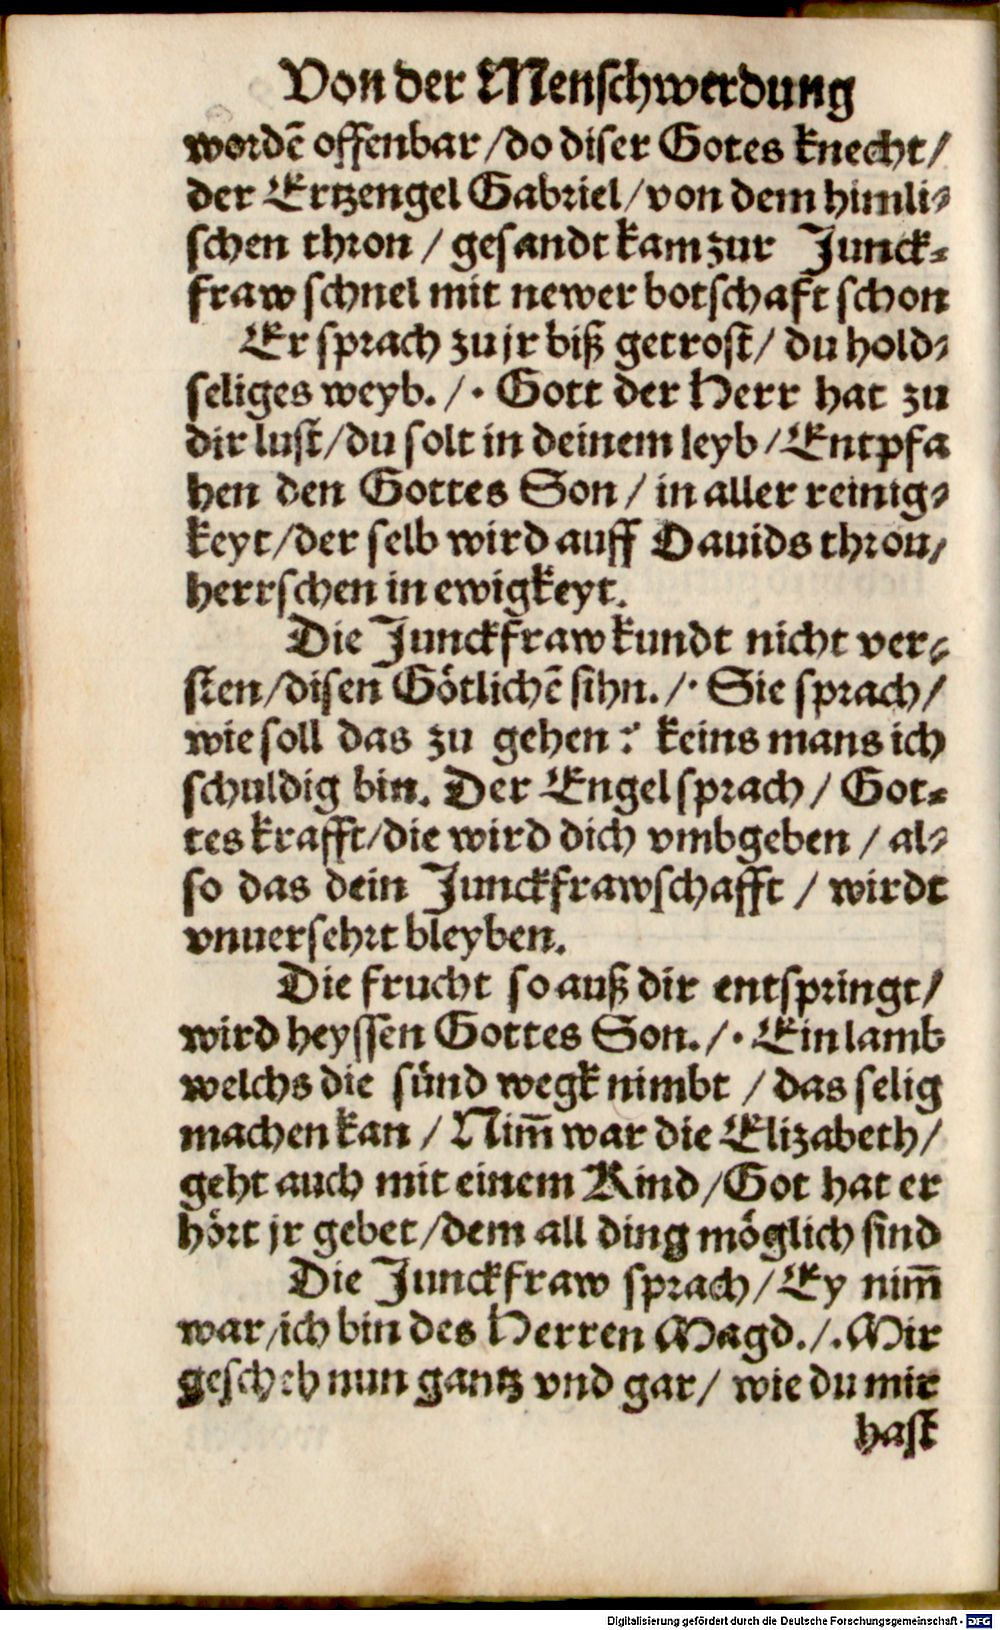 Von der Menschwerdung
wordē offenbar / do diser Gotes knecht /
der Ertzengel Gabriel / von dem himli⸗
schen thron / gesandt kam zur Junck⸗
fraw schnel mit newer botschafft schon
Er sprach zu jr biß getrost / du hold⸗
seliges weyb. /. Gott der Herr hat zu
dir lust / du solt in deinem leyb / Entpfa
hen den Gottes Son / in aller reinig⸗
keyt / der selb wird auff Dauids thron /
herrschen in ewigkeyt.
Die Junckfraw kundt nicht ver⸗
sten / disen Götlichē sihn. /. Sie sprach /
wie soll das zu gehen? keins mans ich
schuldig bin. Der Engel sprach / Got⸗
tes krafft / die wird dich vmbgeben / al⸗
so das dein Junckfrawschafft / wirdt
vnuersehrt bleyben.
Die frucht so auß dir entspringt /
wird heyssen Gottes Son. /. Ein lamb
welchs die sünd wegk nimbt / das selig
machen kan / Nim̄ war die Elizabeth /
geht auch mit einem Kind / Got hat er
hört jr gebet / dem all ding möglich sind
Die Junckfraw sprach / Ey nim̄
war / ich bin des Herren Magd. /. Mir
gescheh nun gantz vnd gar / wie du mir
hast
Digitalisierung gefördert durch die Deutsche Forschungsgemeinschaft - DFG